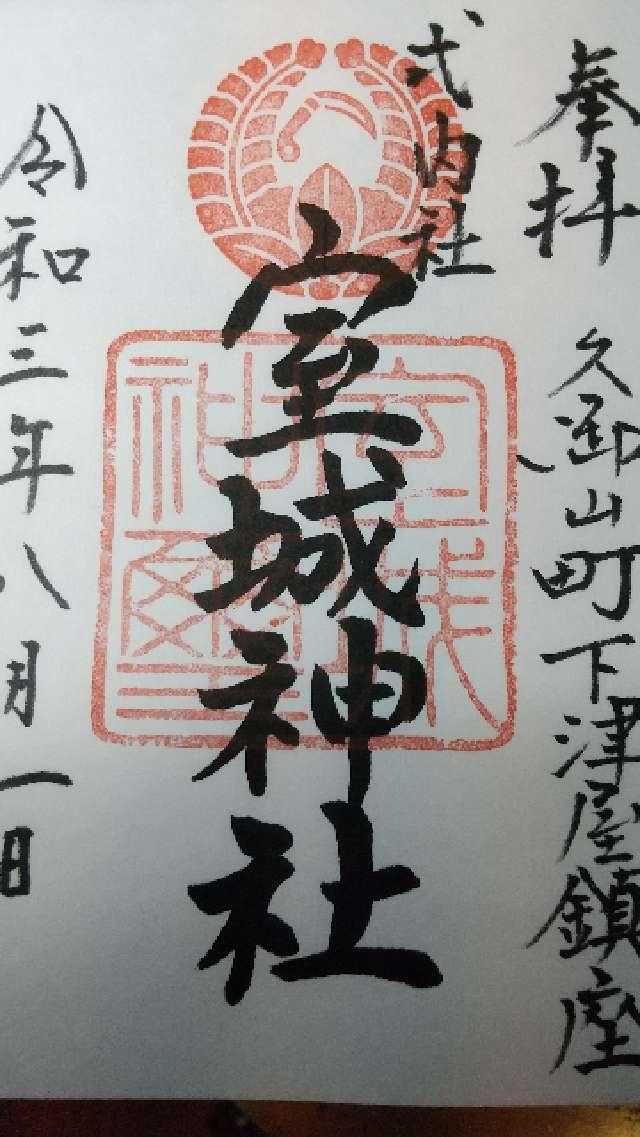 奉拝 久御山町下津屋鎮座
式内社
室城神社
令和三年八月一日